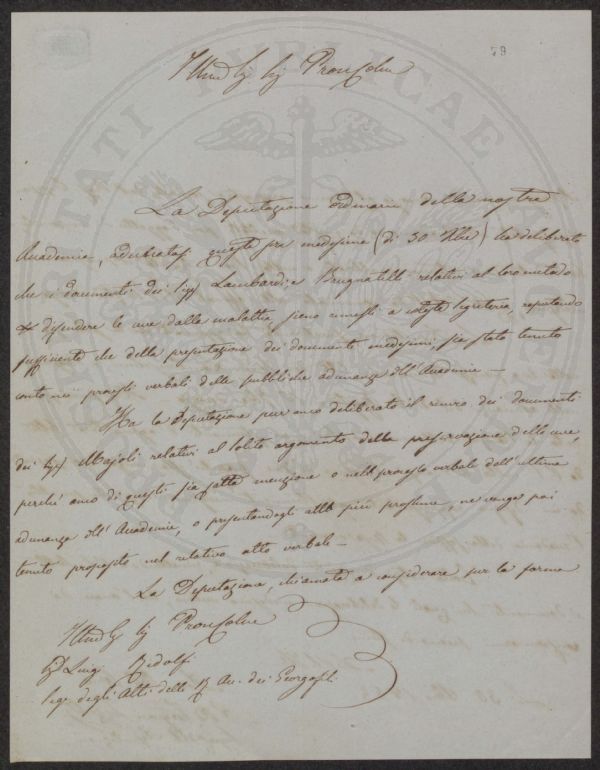 79
Illmo Sig. Sig. Proconsolo
La Deputazione ordinaria della nostra
Accademia, adunatasi questa sera medesima (di 30 Xbre) ha deliberato
che i documenti dei Sigg. Lambardi, e Brugnatelli relativi al loro metodo
di difendere le uve dalla malattia, sieno rimessi a cotesta Segreteria, reputando
sufficiente che della presentazione dei documenti medesimi sia stato tenuto
conto nei processi verbali delle pubbliche adunanze dell'Accademia —
Ha la Deputazione pur anco deliberato il rinvio dei documenti
dei Sigg. Majoli relativi al solito argomento della preservazione delle uve,
perché anco di questi sia fatta menzione o nel processo verbale dell'ultima
adunanza dell'Accademia, o presentandogli alla più prossima, ne venga poi
tenuto proposito nel relativo atto verbale —
La Deputazione, chiamata a considerare per la forma
Illmo Sig. Sig. Proconsolo
Luigi Ridolfi
Seg. degli Atti della R. Acc. dei Georgofili